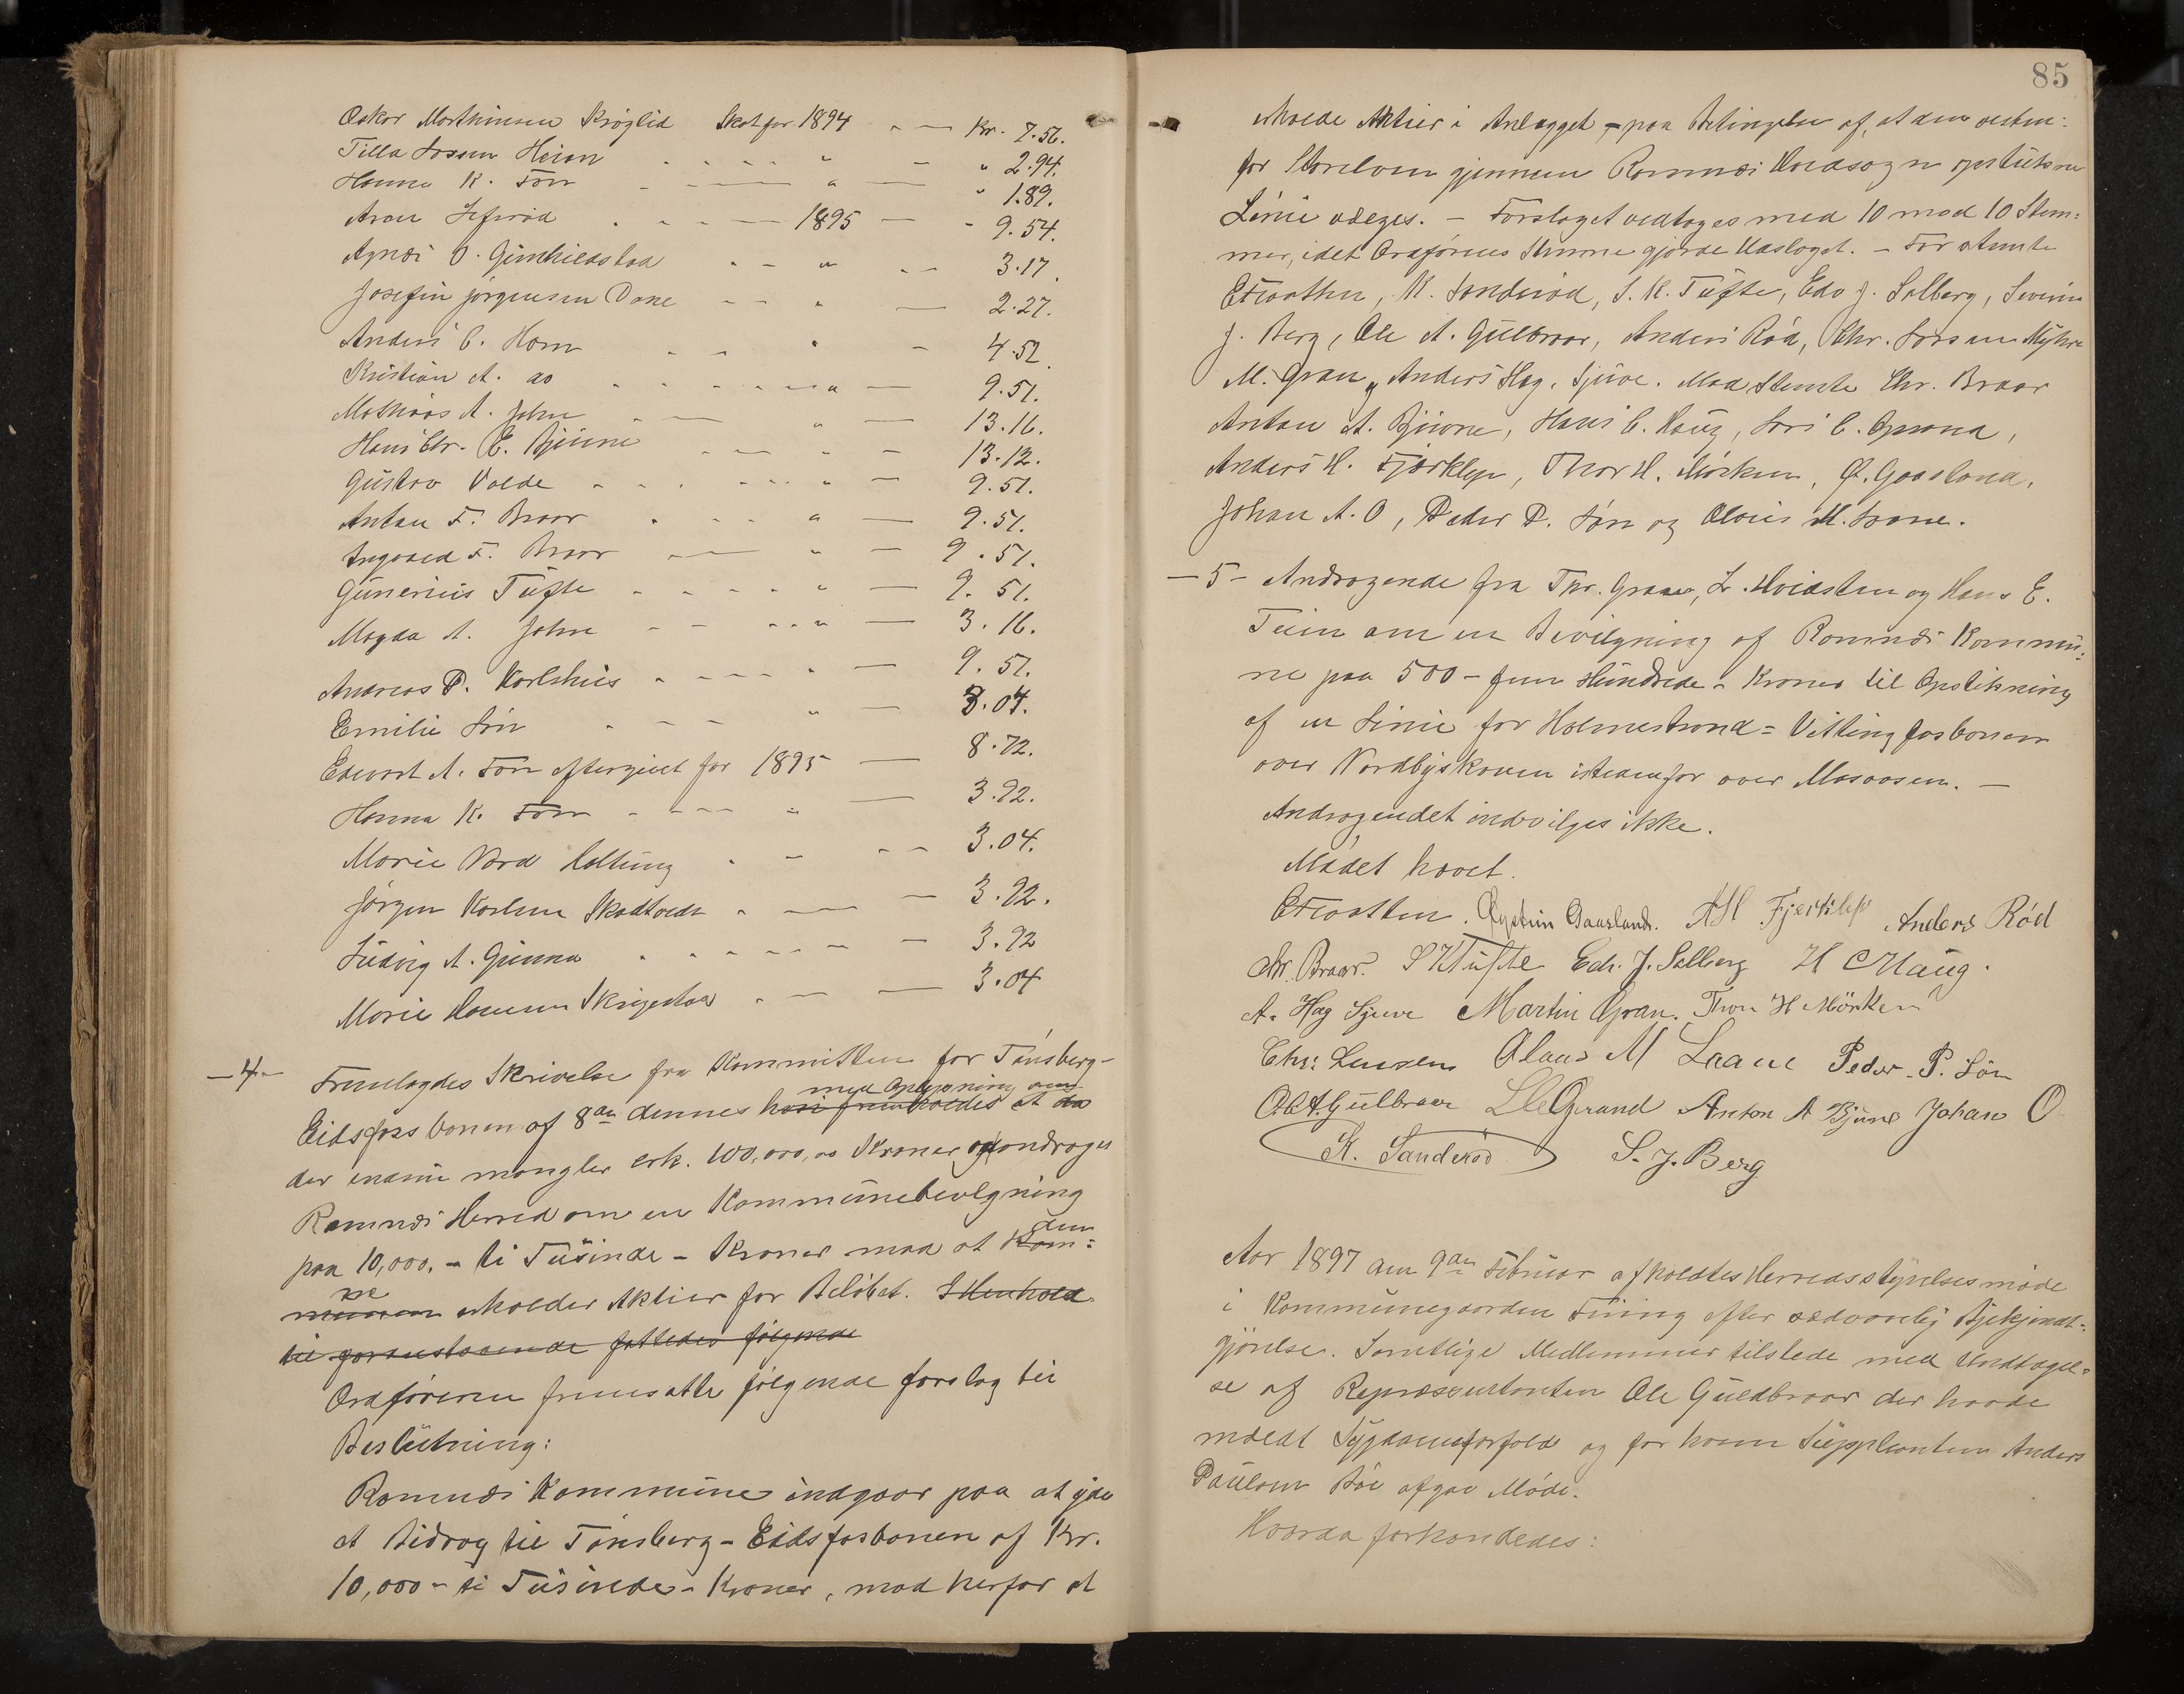 Oskar Mathinsen Krøglid Skat for 1894 " — Kr. 7.56.
Tilla Larsen Heian " — " 2.94.
Hanna K. Fon " — " 1.89.
Aron Lefsrød 1895 — " 9.54.
Agnes O. Gunhildstad " — 3.17.
Josefin Jørgensen Dane " — 2.27.
Anders C. Horn " — 4.52
Kristian A. as " — 9.51.
Mathias A. Jahre " — 13.16.
Hans Chr. E. Bjune " — 13.12.
Gustav Valde " — 9.51.
Anton F. Braar " — 9.51.
Ingvald F. Braar " — 9.51.
Gunerius Tufte " — 9.51.
Magda A. Jahre " — 3.16.
Andreas P. Karlshus " — 9.51.
Emilie Løn " — 3.04.
Edvart A. Fon eftergivet for 1895 — 8.72.
Hanna K. Fon " — 3.92.
Marie Nord Holtung — 3.04.
Jørgen Karlsen Skodtvedt — 3.92.
Ludvig A. Gunna — 3.92
Marie Hansen Skrigestad — 3.04
— 4 — Fremlagdes Skrivelse fra Kommitteen for Tønsberg-
med Oplysning om
Eidsfossbanen af 8de dennes hvori fremholdes at da
der endnu mangler cirk. 100,000,00 Kroner og andrages
Ramnæs Herred om en Kommunebevilgning
den
paa 10,000.- ti Tusinde - Kroner mod at Kom=
ne
munen erholder Aktier for Beløbet. I Henhold
til foranstaaende fattedes følgende
Ordføreren fremsatte følgende forslag til
Beslutning:
Ramnæs Kommune indgaar paa at yde
et Bidrag til Tønsberg - Eidsfosbanen af Kr.
10,000 - ti Tusinde - Kroner, mod herfor at
85
erholde Aktier i Anlægget, - paa Betingelse af, at den vesten=
for Storelven gjennem Ramnæs Hovedsogn opstukne
Linie vælges. - Forslaget vedtoges med 10 mod 10 Stem=
mer, idet Ordførerens Stemme gjorde Udslaget. - For stemte
K. Sanderød, S. K. Tufte, Edv. J. Solberg, Severin
J. Berg, Ole A. Gulbraar, Anders Rød, Chr. Larsen Myhre
M. Gran og Anders Hag. Sjuve. Mod stemte Chr. Braar
Anton A. Bjune, Hans C. Haug, Lars C. Grand,
Anders H. Fjærklep, Thor H. Mørken, Ø. Gaasland,
Johan A. O, Peder P. Løn og Olaus M. Laane.
— 5 — Andragende fra Thr. Graae, L. Hvidsten og Hans E.
Tuin om en Bevilgning af Ramnæs Kommu=
ne paa 500 - fem Hundrede - Kroner til Opstikning
af en Linie for Holmestrand = Vittingfosbanen
over Nordbyskoven istedenfor over Mosaasen. —
Andragendet indvilges ikke.
Mødet hævet.
Øystein Gaasland. A H Fjerklep Anders Rød
Chr. Braar. S K Tufte Edv. J. Solberg H C Haug.
A. Hag Sjuve Martin Gran. Thor H Mörken
Chr: Larsen Olaus M Laane Peder P. Løn
Ole A. Gulbraar L C Grand Anton A Bjune Johan O
K. Sanderød S. J. Berg
Aar 1897 den 9de Februar afholdtes Herredsstyrelsesmøde
i Kommunegaarden Fuing efter sædvanlig Bekjendt=
gjørelse. Samtlige Medlemmer tilstede med Undtagel=
se af Repræsentanten Ole Guldbraar der havde
meldt Sygdomsforfald og for ham Suppleanten Anders
Paulsen Bøe afgav Møde.
Hvorda forhandledes: